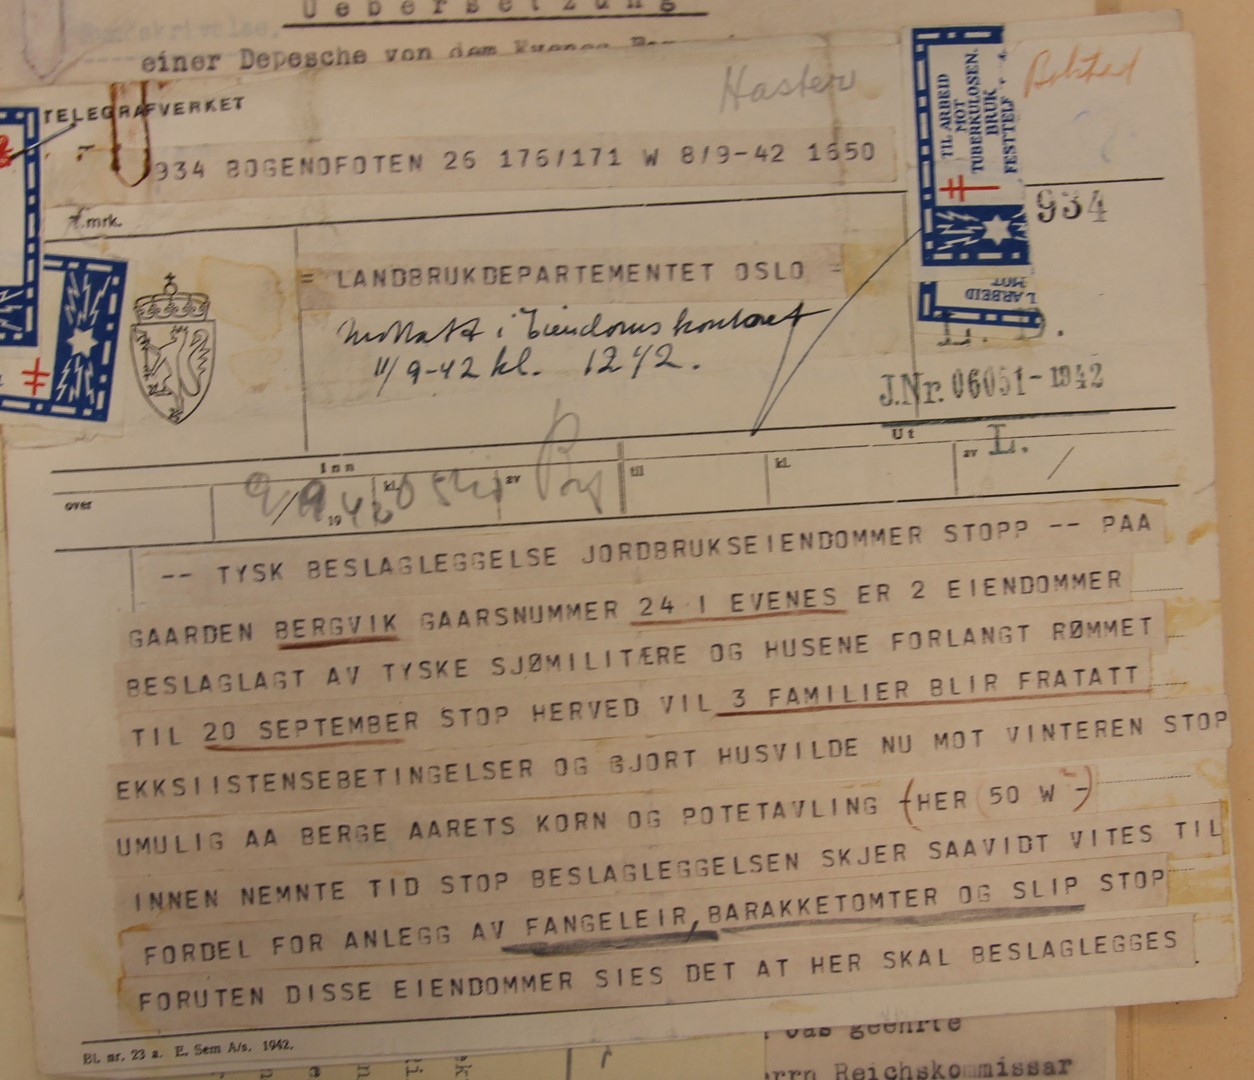 Uebersetzung
einer Depesche von dem Evenes
TELEGRAFVERKET
Haster
934 BOGENOFOTEN 26 176/171 W 8/9-42 1650
TIL ARBEID
MOT
TUBERKULOSEN.
BRUK
FESTTELF
L ARBEID
MOT
T.mrk.
934
= LANDBRUKDEPARTEMENTET OSLO =
Mottatt i Eiendomskontoret
11/9-42 kl. 1242.
L. D.
J.Nr. 06051-1942
L.
Inn
Ut
over
9/9 1942
kl.
av
til
kl.
av
-- TYSK BESLAGLEGGELSE JORDBRUKSEIENDOMMER STOPP -- PAA
GAARDEN BERGVIK GAARSNUMMER 24 I EVENES ER 2 EIENDOMMER
BESLAGLAGT AV TYSKE SJØMILITÆRE OG HUSENE FORLANGT RØMMET
TIL 20 SEPTEMBER STOP HERVED VIL 3 FAMILIER BLIR FRATATT
EKKSIISTENSEBETINGELSER OG GJORT HUSVILDE NU MOT VINTEREN STOP
UMULIG AA BERGE AARETS KORN OG POTETAVLING (HER 50 W -)
INNEN NEMNTE TID STOP BESLAGLEGGELSEN SKJER SAAVIDT VITES TIL
FORDEL FOR ANLEGG AV FANGELEIR, BARAKKETOMTER OG SLIP STOP
FORUTEN DISSE EIENDOMMER SIES DET AT HER SKAL BESLAGLEGGES
Bl. nr. 23 a. E. Sem A/s. 1942.
das geehrte
errn Reichskommissar